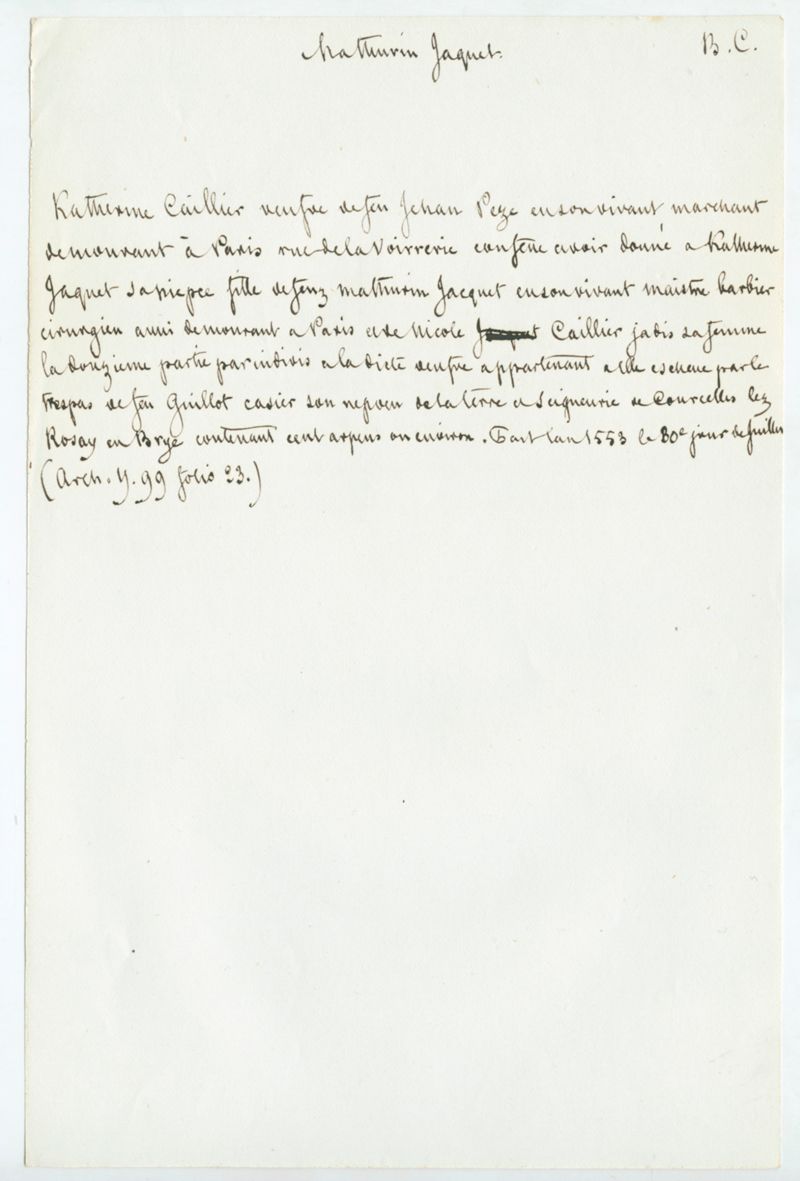 Mathurin Jaquet.
B. C.
Katherine Caillier veufve de feu Jehan Peze en son vivant marchant
demourant à Paris rue de la Voirrerie confesse avoir donné a Katherine
Jaquet sa niepce fille de feuz Mathurin Jacquet en son vivant maistre barbier
cirurgien aussi demourant a Paris et de Nicole Caillier jadis sa femme
la douzieme partie par indivis a la dicte veufve appartenant a elle escheue par le
trespas de feu Guillot casier son nepveu de la terre et Seigneurie de Courcelles lez
Rosay en Brye contenant cent arpens ou environ. Fait l'an 1553 le 30e jour de Juillet
(Arch. Y. 99 folio 23.)